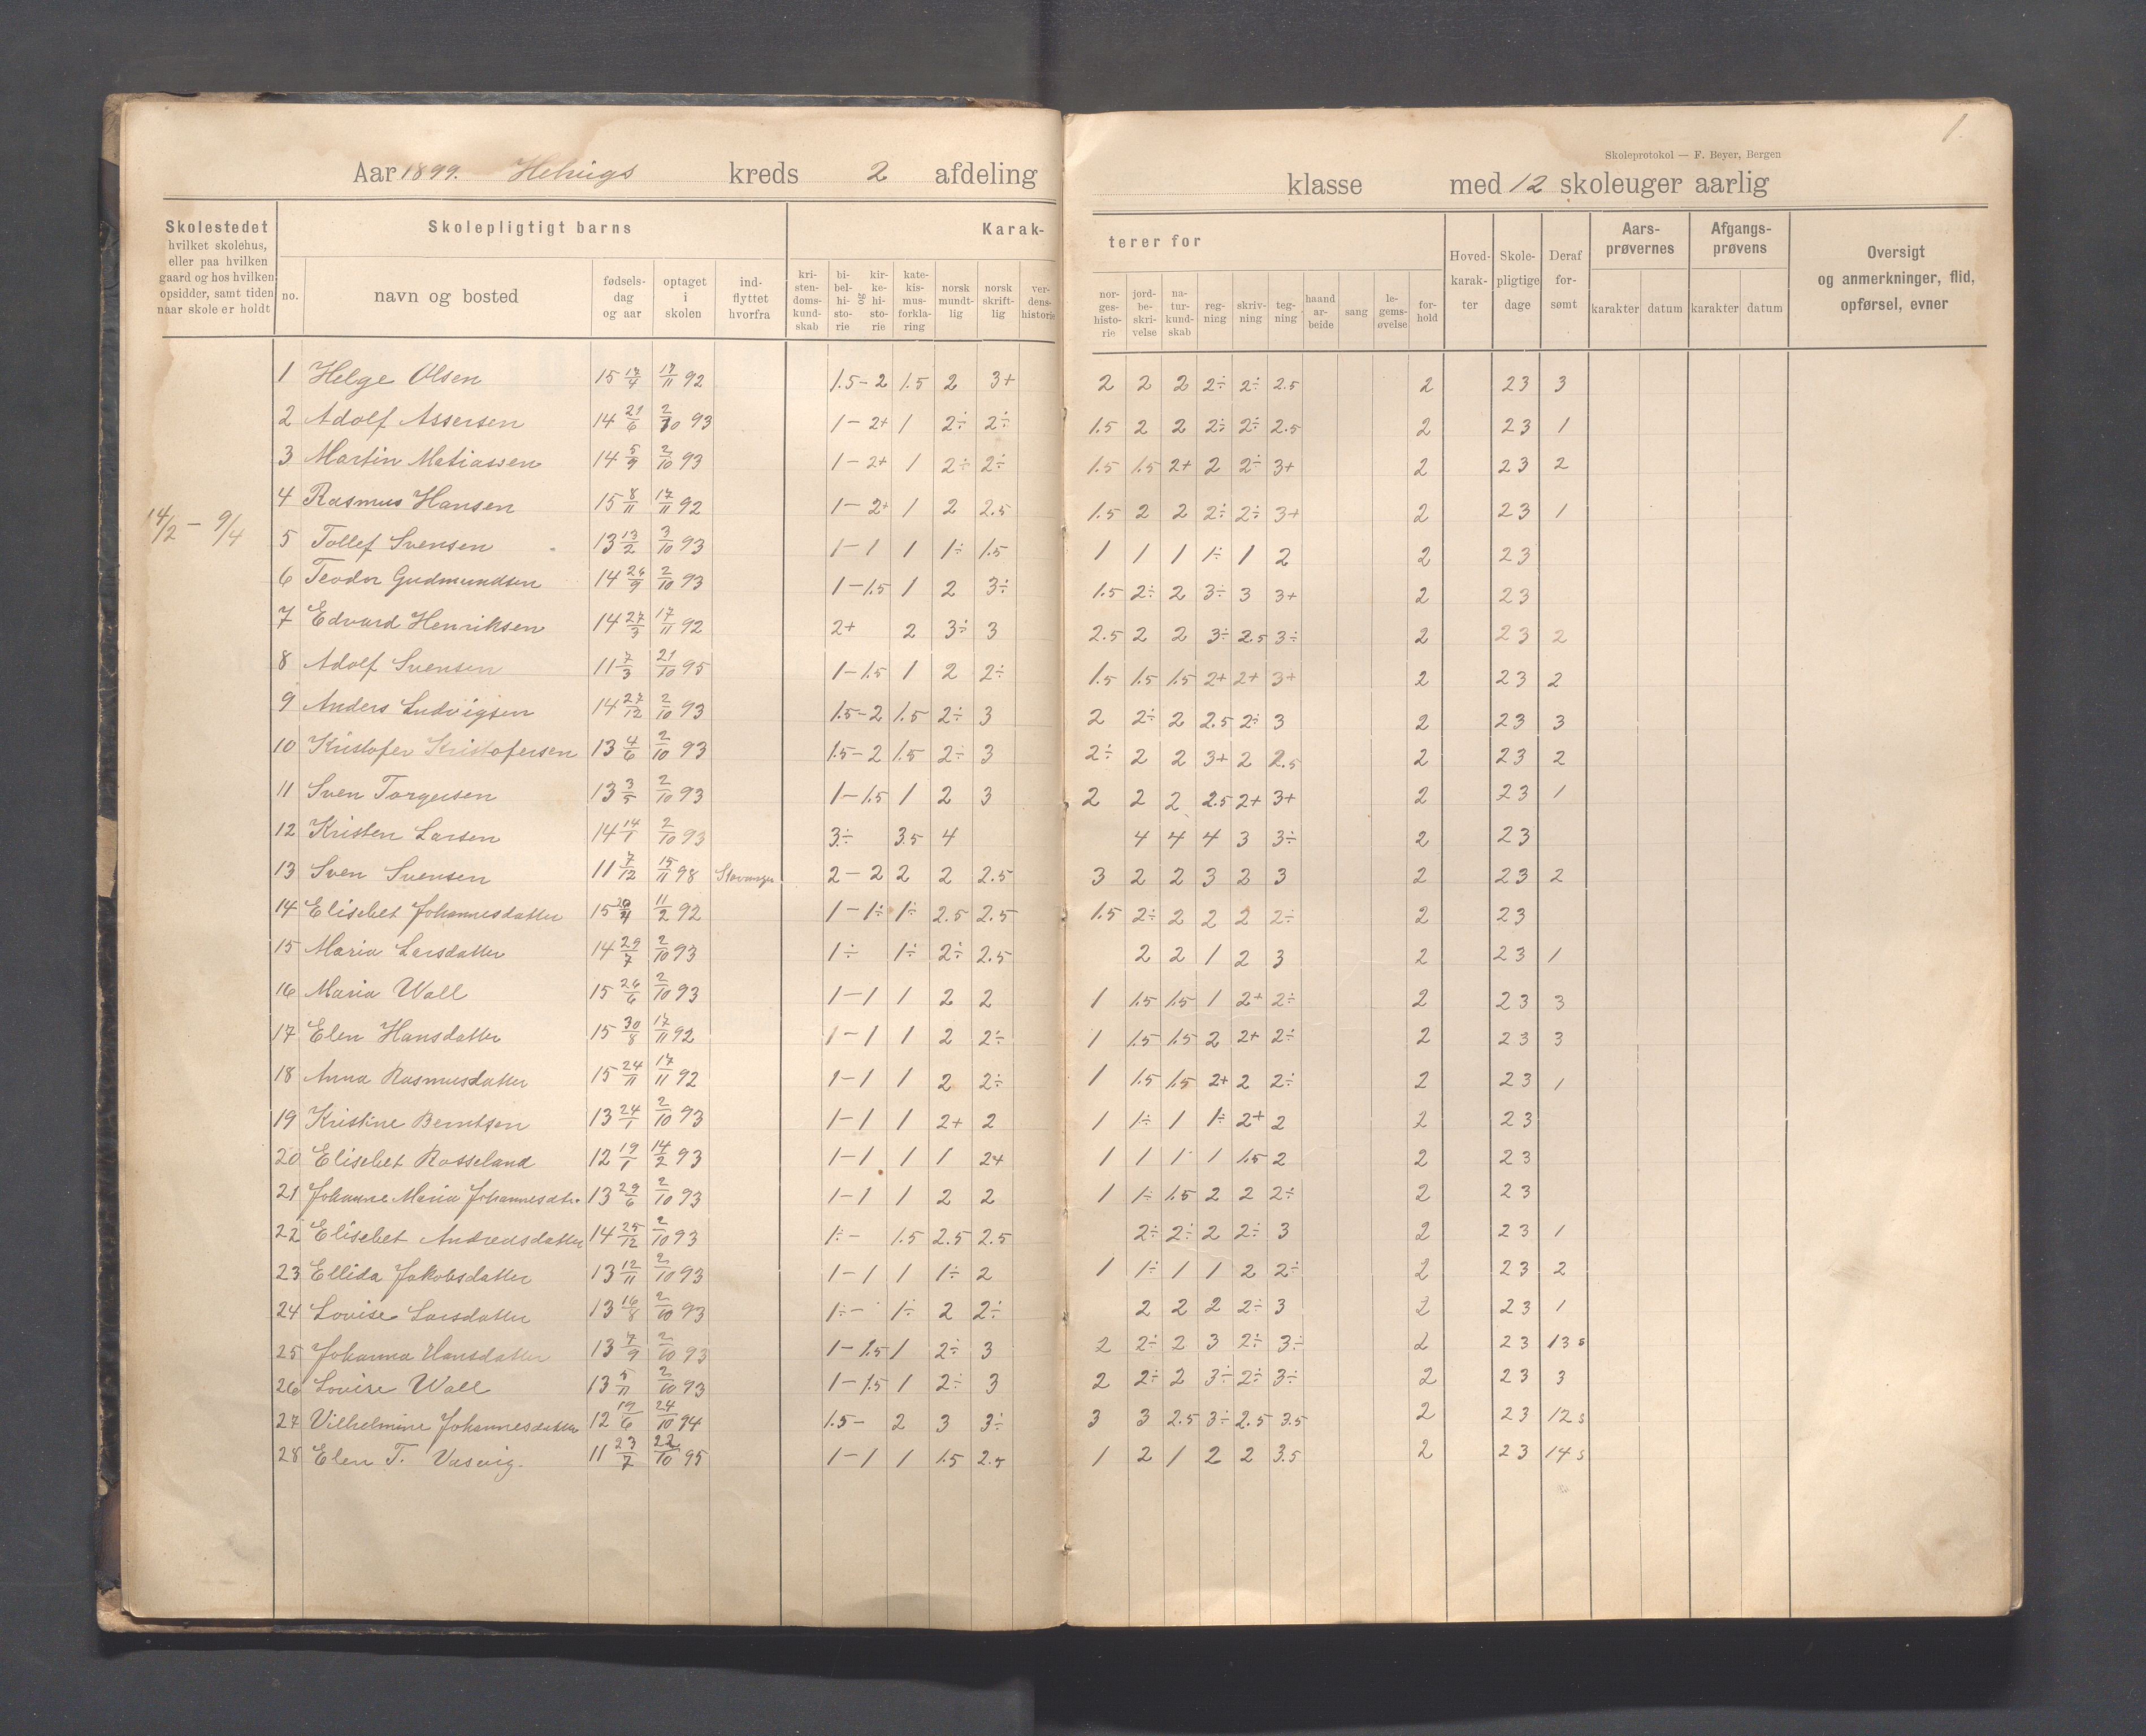 1.
Skoleprotokol — F. Beyer, Bergen
Aar 1899. kreds 2 afdeling klasse med 12 skoleuger aarlig
Skolestedet hvilket skolehus, eller paa hvilken gaard og hos hvilken opsidder, samt tiden naar skole er holdt
Skolepligtigt barns
no. navn og bosted fødsels-dag og aar optaget i skolen ind-flyttet hvorfra
Karak-terer for
kri-sten-doms-kund-skab bi-bel-hi-sto-rie og kir-ke-hi-sto-rie kate-kis-mus-forkla-ring norsk mundt-lig norsk skrift-lig ver-dens-historie nor-ges-histo-rie jord-be-skri-velse na-tur-kund-skab reg-ning skriv-ning teg-ning haand ar-beide sang le-gems-øvelse for-hold
Hoved-karak-ter Skole-pligtige dage Deraf for-sømt
Aars-prøvernes karakter datum
Afgangs-prøvens karakter datum
Oversigt og anmerkninger, flid, opførsel, evner
14/2 — 9/4
1 Helge Olsen 15 17/4 17/11 92 1.5 – 2 1.5 2 3+ 2 2 2 2÷ 2÷ 2.5 2 23 3
2 Adolf Assersen 14 21/6 2/10 93 1 – 2+ 1 2÷ 2÷ 1.5 2 2 2÷ 2÷ 2.5 2 23 1
3 Martin Matiassen 14 5/9 2/10 93 1 – 2+ 1 2÷ 2÷ 1.5 1.5 2+ 2 2÷ 3+ 2 23 2
4 Rasmus Hansen 15 8/11 17/11 92 1 – 2+ 1 2 2.5 1.5 2 2 2÷ 2÷ 3+ 2 23 1
5 Tollef Svensen 13 13/2 3/10 93 1 – 1 1 1÷ 1.5 1 1 1 1÷ 1 2 2 23
6 Teodor Gudmundsen 14 26/9 2/10 93 1 – 1.5 1 2 3÷ 1.5 2÷ 2 3÷ 3 3+ 2 23
7 Edvard Henriksen 14 27/3 17/11 92 2+ 2 3÷ 3 2.5 2 2 3÷ 2.5 3÷ 2 23 2
8 Adolf Svensen 11 7/3 21/10 95 1 – 1.5 1 2 2÷ 1.5 1.5 1.5 2+ 2+ 3+ 2 23 2
9 Anders Ludvigsen 14 27/12 2/10 93 1.5 – 2 1.5 2÷ 3 2 2÷ 2 2.5 2÷ 3 2 23 3
10 Kristofer Kristofersen 13 4/6 2/10 93 1.5 – 2 1.5 2÷ 3 2÷ 2 2 3+ 2 2.5 2 23 2
11 Sven Torgersen 13 3/5 2/10 93 1 – 1.5 1 2 3 2 2 2 2.5 2+ 3+ 2 23 1
12 Kristen Larsen 14 14/1 2/10 93 3÷ 3.5 4 4 4 4 3 3÷ 2 23
13 Sven Svensen 11 7/12 15/11 98 Stavanger 2 – 2 2 2 2.5 3 2 2 3 2 3 2 23 2
14 Elisebet Johannesdatter 15 20/4 11/2 92 1 – 1÷ 1÷ 2.5 2.5 1.5 2÷ 2 2 2 2÷ 2 23
15 Maria Larsdatter 14 29/7 2/10 93 1÷ 1÷ 2÷ 2.5 2 2 1 2 3 2 23 1
16 Maria Wall 15 26/6 2/10 93 1 – 1 1 2 2 1 1.5 1.5 1 2+ 2÷ 2 23 3
17 Elen Hansdatter 15 30/8 17/11 92 1 – 1 1 2 2÷ 1 1.5 1.5 2 2+ 2÷ 2 23 3
18 Anna Rasmusdatter 15 24/11 17/11 92 1 – 1 1 2 2÷ 1 1.5 1.5 2+ 2 2÷ 2 23 1
19 Kristine Berntsen 13 24/1 2/10 93 1 – 1 1 2+ 2 1 1÷ 1 1÷ 2+ 2 2 23
20 Elisebet Rosseland 12 19/1 14/2 93 1 – 1 1 1 2+ 1 1 1 1 1.5 2 2 23
21 Johanne Maria Johannesdtr. 13 29/6 2/10 93 1 – 1 1 2 2 1 1÷ 1.5 2 2 2÷ 2 23
22 Elisebet Andreasdatter 14 25/12 2/10 93 1÷ – 1.5 2.5 2.5 2÷ 2÷ 2 2÷ 3 2 23 1
23 Ellida Jakobsdatter 13 12/11 2/10 93 1 – 1 1 1÷ 2 1 1÷ 1 1 2 2÷ 2 23 2
24 Lovise Larsdatter 13 16/8 2/10 93 1÷ – 1÷ 2 2÷ 2 2 2 2÷ 3 2 23 1
25 Johanna Hansdatter 13 7/9 2/10 93 1 – 1.5 1 2÷ 3 2 2÷ 2 3 2÷ 3÷ 2 23 13 s
26 Lovise Wall 13 5/11 2/10 93 1 – 1.5 1 2÷ 3 2 2÷ 2 3÷ 2÷ 3÷ 2 23 3
27 Vilhelmine Johannesdatter 12 19/6 24/10 94 1.5 – 2 3 3÷ 3 3 2.5 3÷ 2.5 3.5 2 23 12 s
28 Elen T. Vasvig. 11 23/7 22/10 95 1 – 1 1 1.5 2.5 1 2 1 2 2 3.5 2 23 14 s